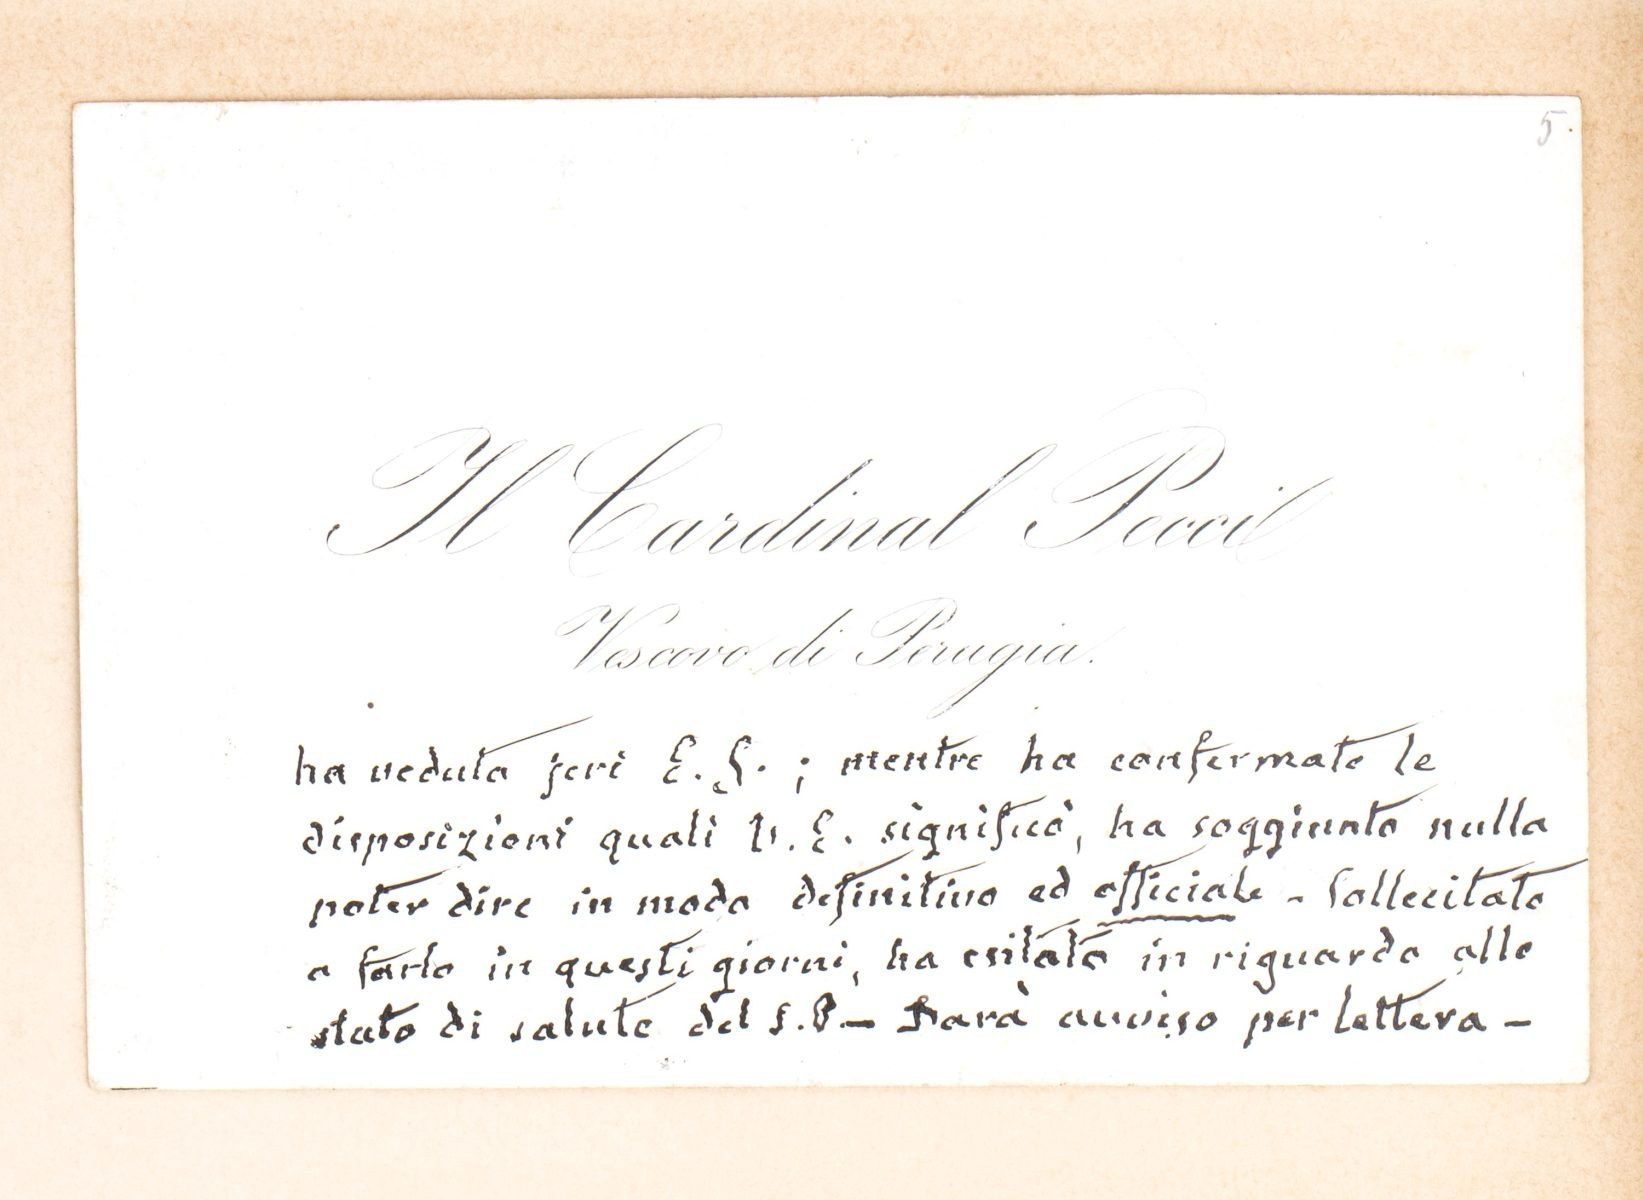 5.
Il Cardinal Pecci
Vescovo di Perugia.
ha veduto jeri E. S. ; mentre ha confermate le
disposizioni quali V. E. significò, ha soggiunto nulla
poter dire in modo definitivo ed officiale - Sollecitato
a farlo in questi giorni, ha esitato in riguardo allo
stato di salute del S. P. – Darà avviso per lettera –